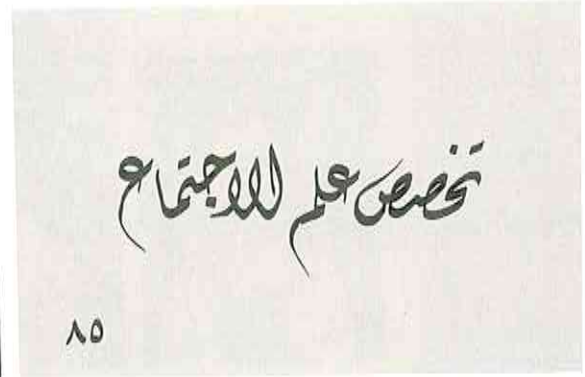 تخصص علم الاجتماع
٨٥